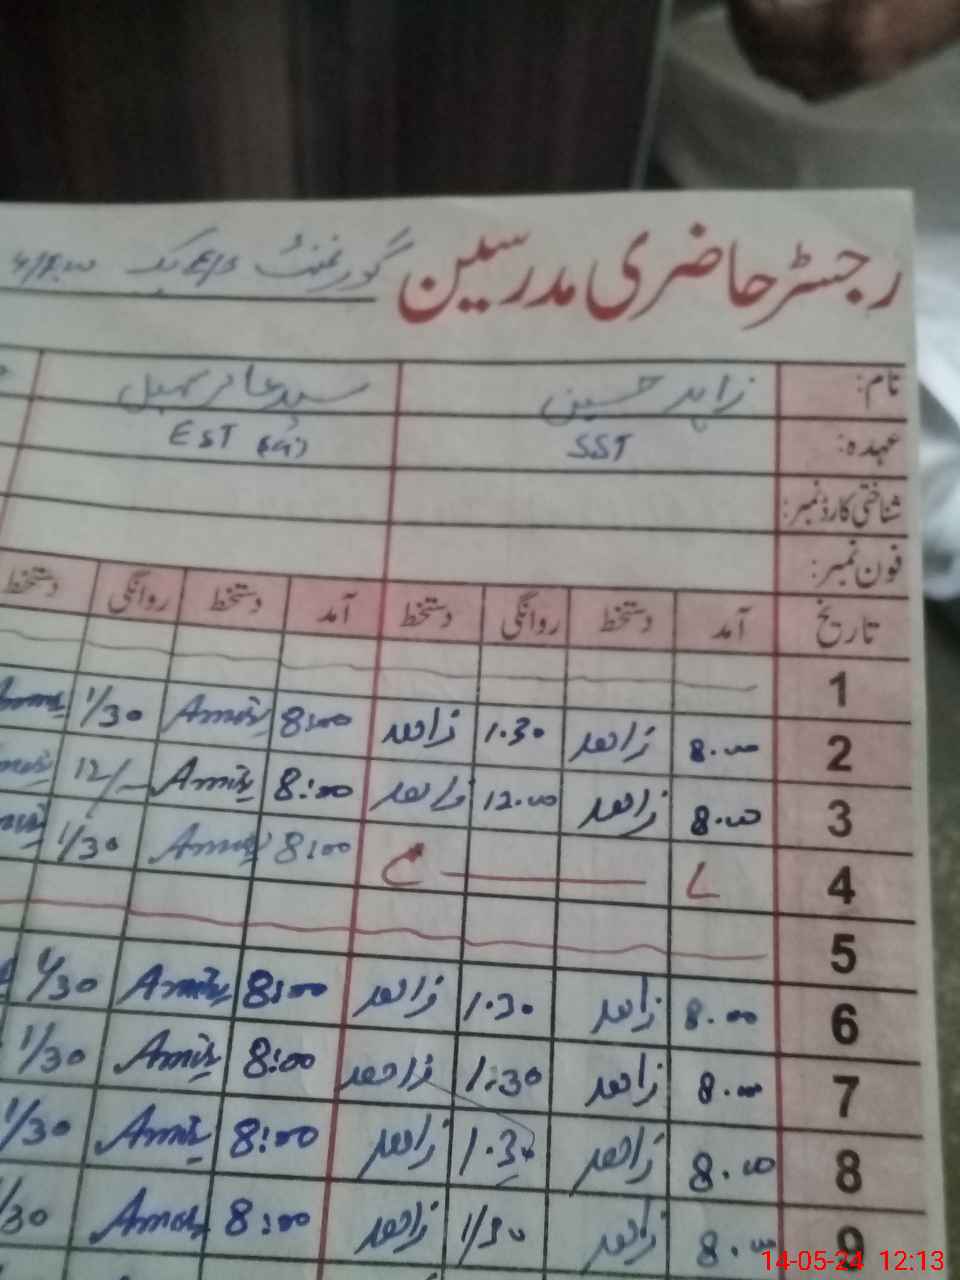 رجسٹر حاضری مدرسین گورنمنٹ
نام: زاہد حسین سید عامر سہیل
عہدہ: SST EST
شناختی کارڈ نمبر:
فون نمبر:
تاریخ آمد دستخط روانگی دستخط آمد دستخط روانگی دستخط
1
2 8.00 زاھد 1.30 زاھد 8:00 Amir 1/30
3 8.00 زاھد 12.00 زاھد 8:00 Amir 12/-
4 8:00 Amir 1/30
5
6 8.00 زاھد 1.30 زاھد 8:00 Amir 1/30
7 8.00 زاھد 1:30 زاھد 8:00 Amir 1/30
8 8.00 زاھد 1.30 زاھد 8:00 Amir 1/30
9 8.00 زاھد 1/30 زاھد 8:00 Amir 1/30
14-05-24 12:13